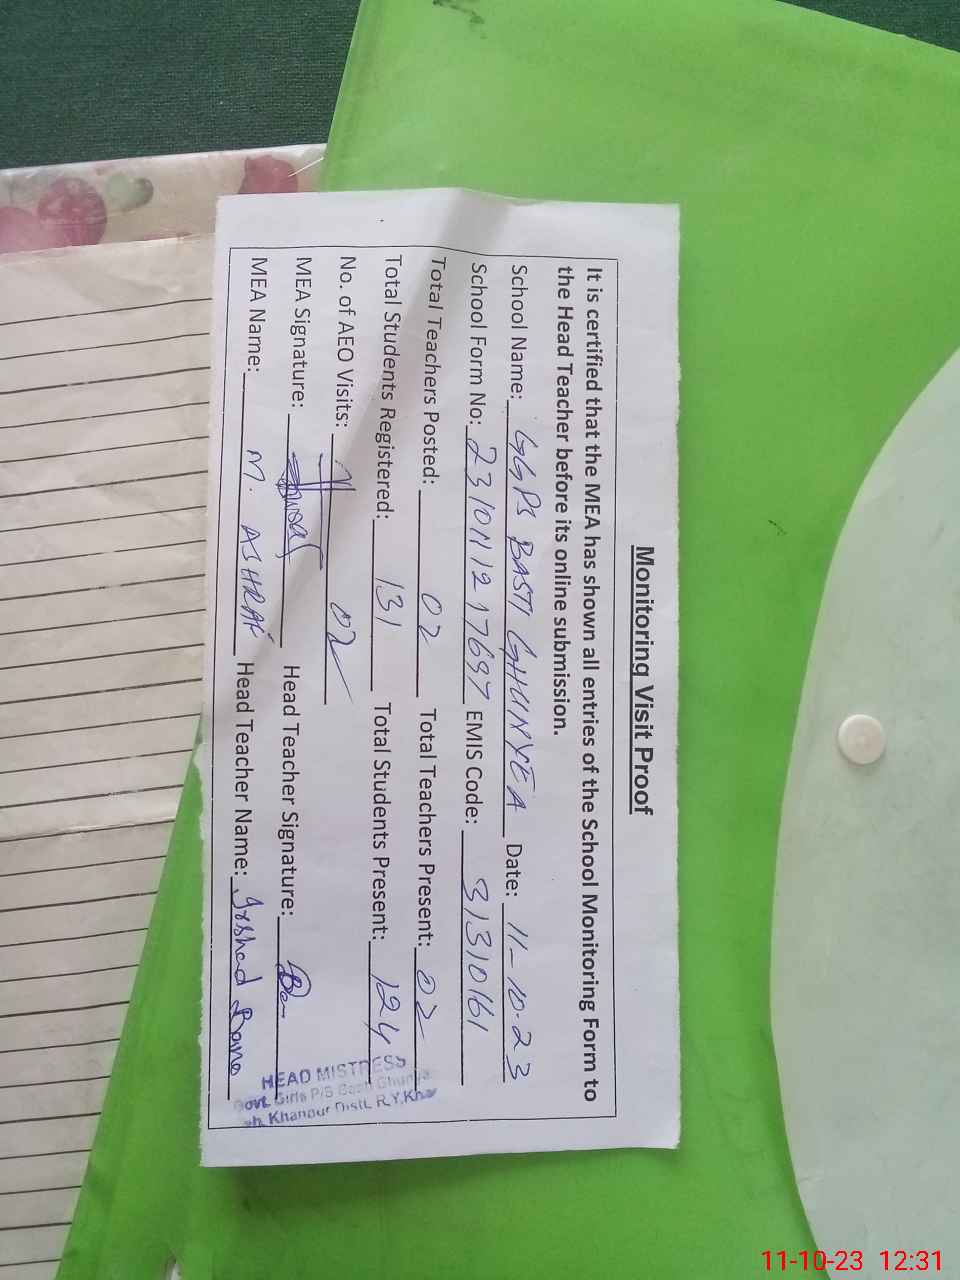 Monitoring Visit Proof
It is certified that the MEA has shown all entries of the School Monitoring Form to
the Head Teacher before its online submission.
School Name: GGPS BASTI GHUNYEA Date: 11-10-23
School Form No: EMIS Code: 31310161
Total Teachers Posted: 02 Total Teachers Present: 02
Total Students Registered: 131 Total Students Present: 124
No. of AEO Visits: 02
MEA Signature: Head Teacher Signature:
MEA Name: M. ASHRAF Head Teacher Name: Irshad
HEAD MISTRESS
Govt. Girls P/S Basti
Khanpur Distt. R.Y.Khan
11-10-23 12:31